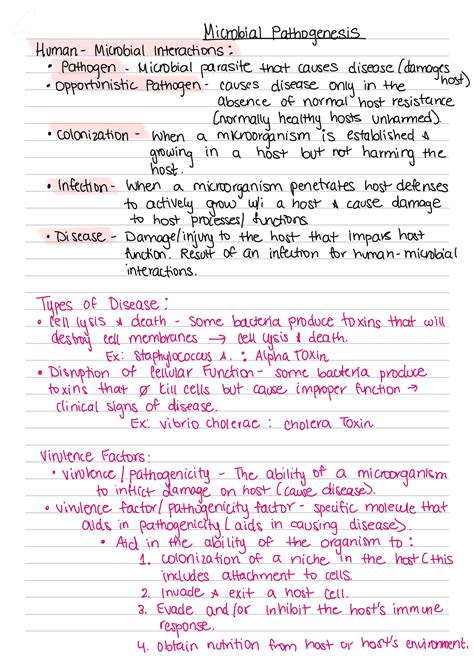 Microbial Pathogenesis
Human - Microbial Interactions:
• Pathogen - Microbial parasite that causes disease (damages host)
• Opportunistic Pathogen - causes disease only in the
absence of normal host resistance
(normally healthy hosts unharmed).
• Colonization - When a microorganism is established &
growing in a host but not harming the
host.
• Infection - When a microorganism penetrates host defenses
to actively grow w/i a host & cause damage
to host processes/functions
• Disease - Damage/injury to the host that impairs host
function. Result of an infection for human-microbial
interactions.
Types of Disease:
• Cell lysis & death - Some bacteria produce toxins that will
destroy cell membranes → cell lysis & death.
Ex: Staphylococcus A. : Alpha Toxin
• Disruption of Cellular Function - some bacteria produce
toxins that Ø kill cells but cause improper function →
clinical signs of disease.
Ex: vibrio cholerae : cholera Toxin
Virulence Factors:
• virulence/pathogenicity - The ability of a microorganism
to inflict damage on host (cause disease).
• virulence factor/pathogenicity factor - specific molecule that
aids in pathogenicity (aids in causing disease).
• Aid in the ability of the organism to:
1. colonization of a niche in the host (this
includes attachment to cells.
2. Invade & exit a host cell.
3. Evade and/or Inhibit the host's immune
response.
4. obtain nutrition from host or host's environment.